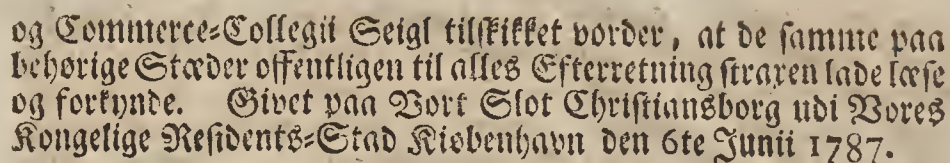 og Commerce-Collegii Seigl tilskikket vorder, at de samme paa
behørige Stæder offentligen til alles Efterretning straxen lade læse
og forkynde. Givet paa Vort Slot Christiansborg udi Vores
Kongelige Residents-Stad Kiøbenhavn den 6te Junii 1787.